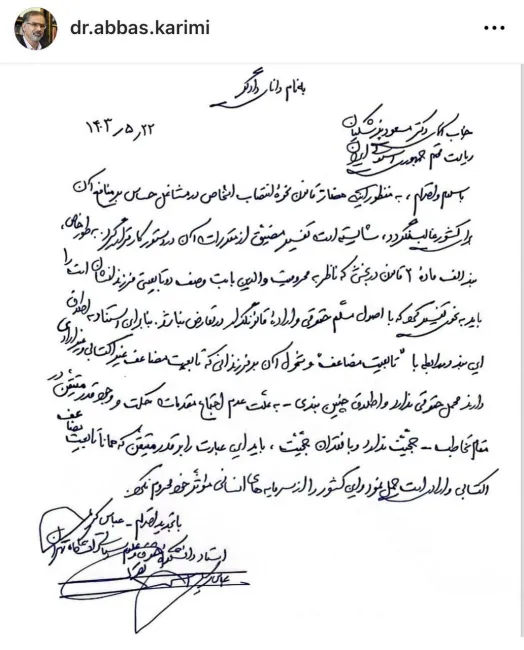 dr.abbas.karimi
بنام دانای دادگر
۱۴۰۳٫۵٫۲۲
جناب آقای دکتر مسعود پزشکیان
ریاست محترم جمهوری اسلامی ایران
با سلام و احترام، به منظور اینکه مضار قانون نحوه انتصاب اشخاص در مشاغل حساس بر منافع آن
برای کشور غالب نگردد، شایسته است تفسیر مضیق از مقررات آن در دستور کار قرار گیرد. به طور خاص،
بند الف ماده ۲ قانون در بخشی که ناظر به محرومیت والدین بابت وصف تابعیتی فرزندانشان است را
باید به نحوی تفسیر نمود که با اصول مسلم حقوقی و اراده قانونگذار در تعارض نباشد. بنابراین استناد به اطلاق
این بند در رابطه با "تابعیت مضاعف" و شمول آن بر فرزندانی که تابعیت مضاعف غیر اکتسابی و غیر ارادی
دارند محمل حقوقی ندارد و اطلاق چنین بندی - به علت عدم اجتماع مقدمات حکمت و وجود قدر متیقن در
مقام تخاطب - حجیت ندارد و با فقدان حجیت، باید این عبارت را بر قدر متیقن که همانا تابعیت مضاعف
اکتسابی و ارادی است حمل نمود و این کشور را از سرمایه های انسانی مؤثر خود محروم نکرد.
با تجدید احترام - عباس کریمی
استاد دانشکده حقوق و علوم سیاسی دانشگاه تهران